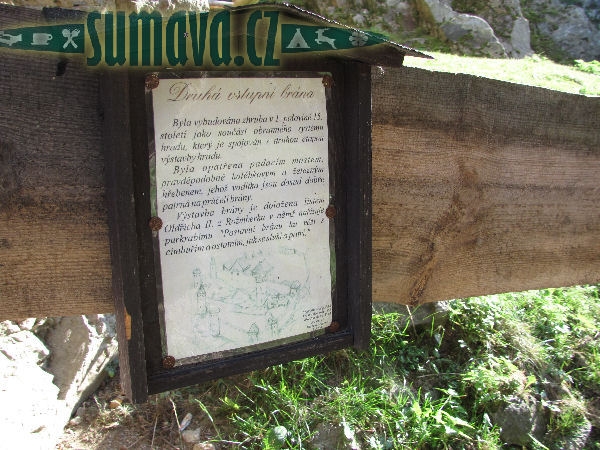 šumava.cz
Druhá vstupní brána
Byla vybudována zhruba v 1. polovině 15.
století jako součást obranného systému
hradu, který je spojován s druhou etapou
výstavby hradu.
Byla opatřena padacím mostem,
pravděpodobně kolébkovým a železným
hřebenem, jehož vodítka jsou dosud dobře
patrná na průčelí brány.
Výstavba brány je doložena listem
Oldřicha II. z Rožmberka v němž nařizuje
purkrabímu "Postavit bránu ku věži s
cimbuřím a ostatním, jak se sluší a patří."